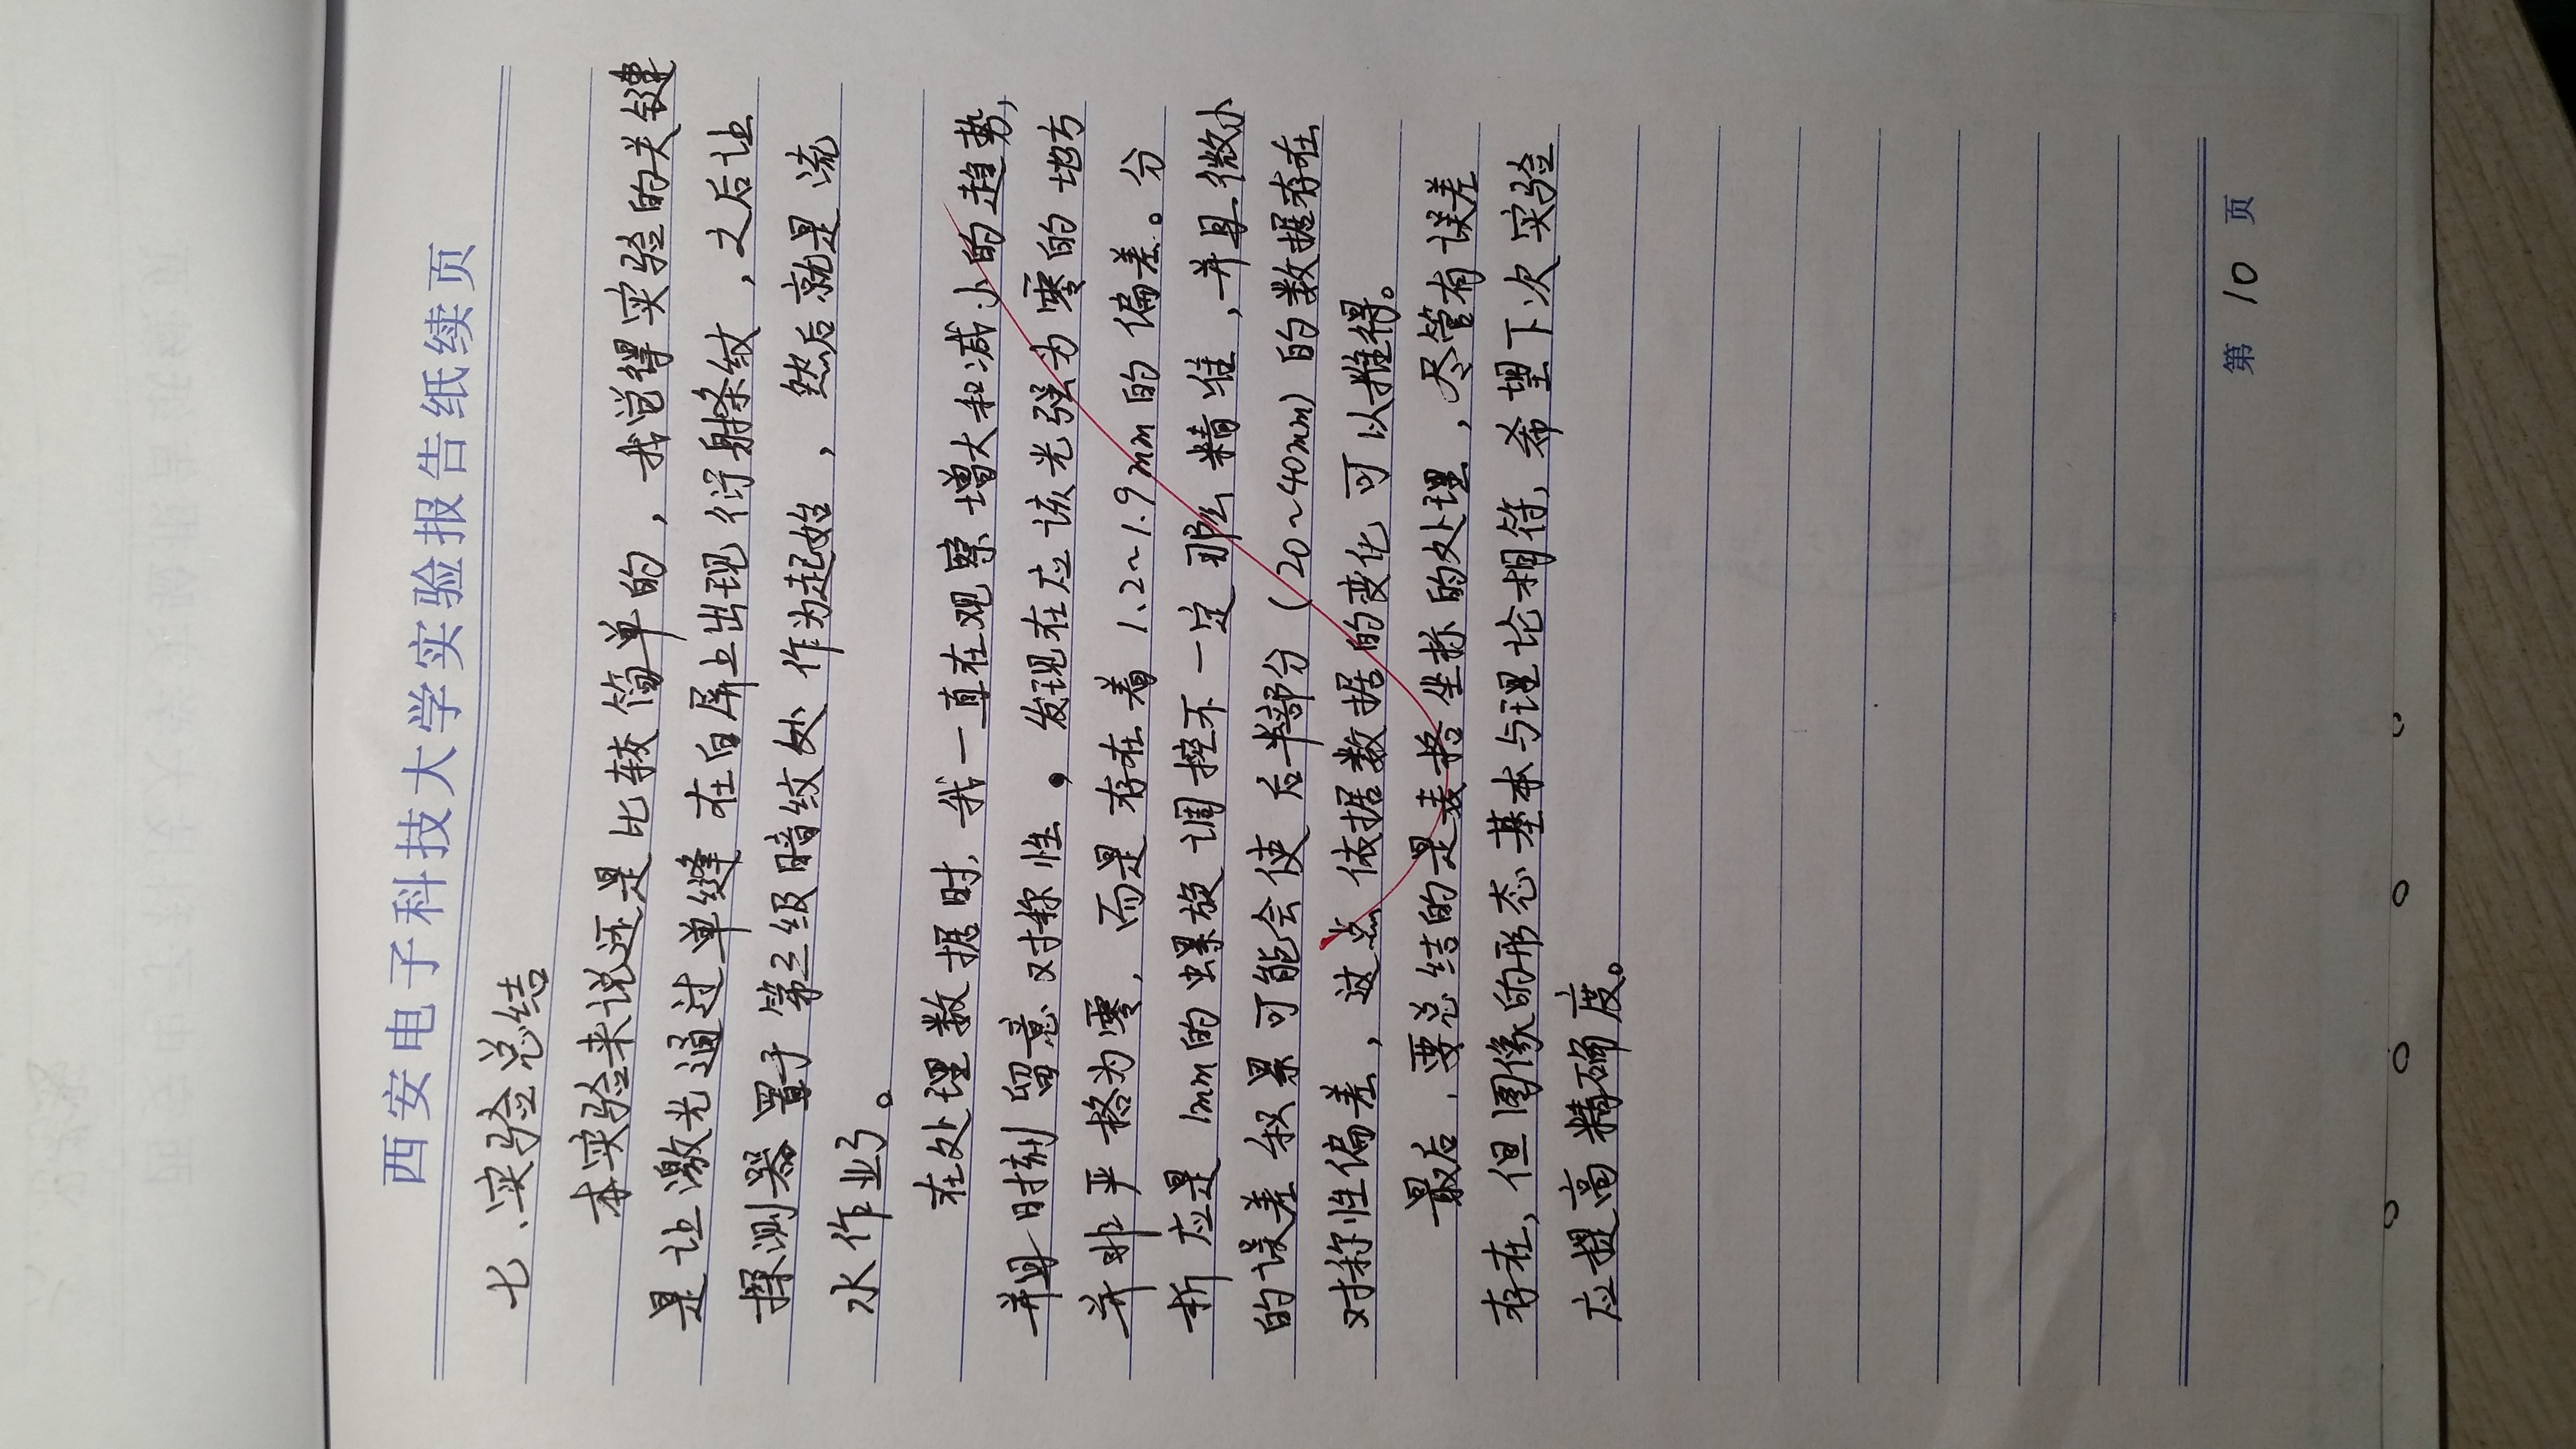 西安电子科技大学实验报告纸续页
七、实验总结
本实验来说还是比较简单的，我觉得实验的关键
是让激光通过单缝在白屏上出现衍射条纹，之后让
探测器置于第三级暗纹处作为起始，然后就是流
水作业了。
在处理数据时,我一直在观察增大和减小的趋势,
并且时刻留意对称性，发现在应该光强为零的地方
并非严格为零,而是存在着1.2~1.9mm的偏差。分
析应是1mm的螺旋调控不一定那么精准,并且微小
的误差积累可能会使后半部分(20~40mm)的数据存在
对称性偏差,这点依据数据的变化可以推得。
最后,要总结的是表格坐标的处理,尽管有误差
存在,但图像的形态基本与理论相符,希望下次实验
应提高精确度。
第 10 页